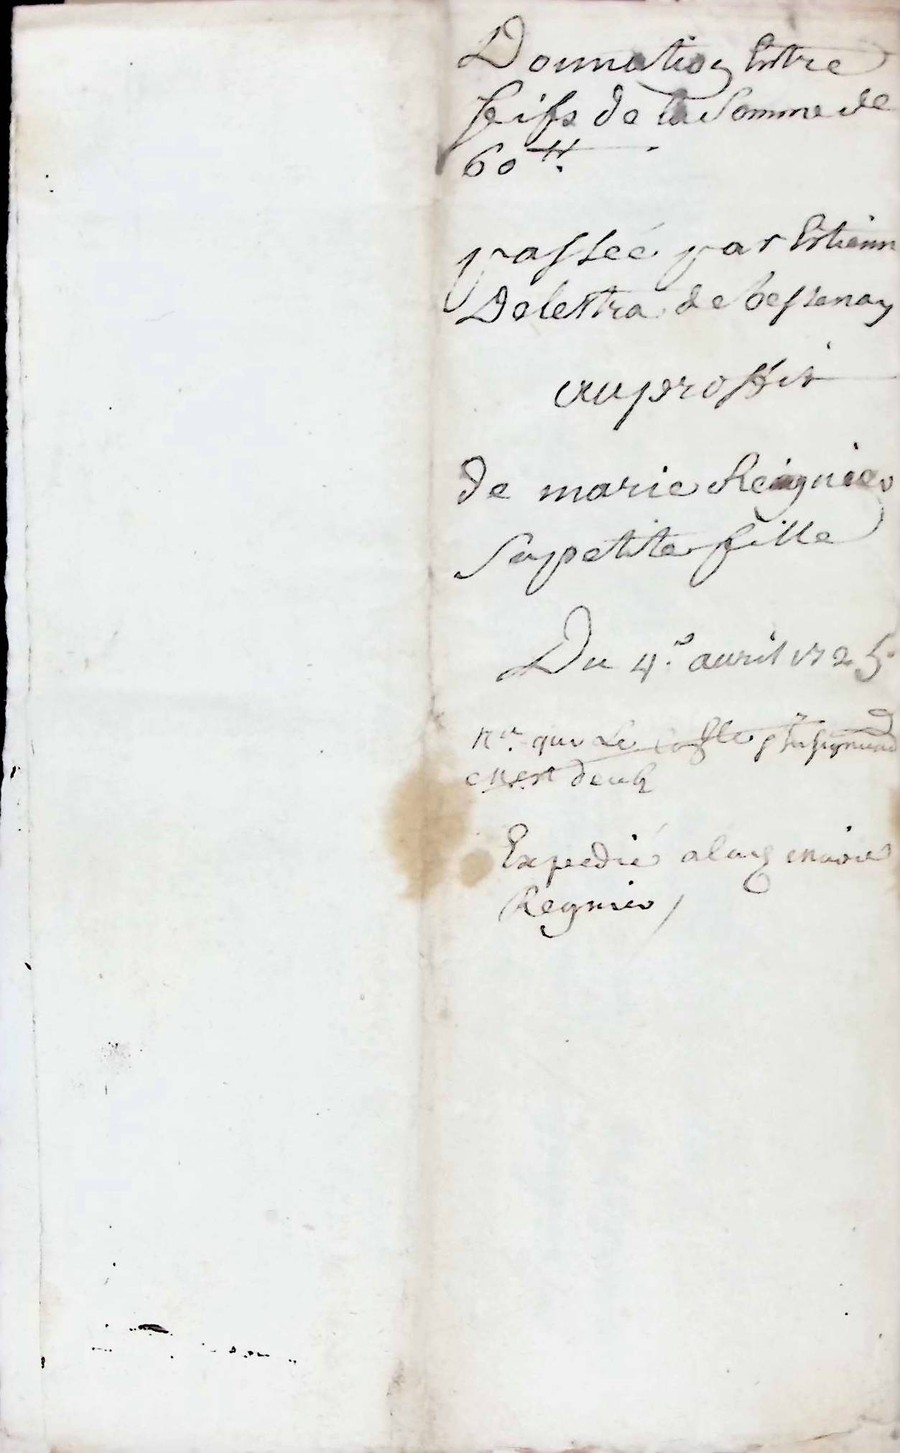 Donnation Entre
feifs de la Somme de
60 ₶.
passeé par Estienne
Delestra de bessenay
au proffit
de marie Reignier
sa petite fille
Du 4.e auril 1725.
n.a que Le
en est deub
Expedié a lad marie
Regnier /